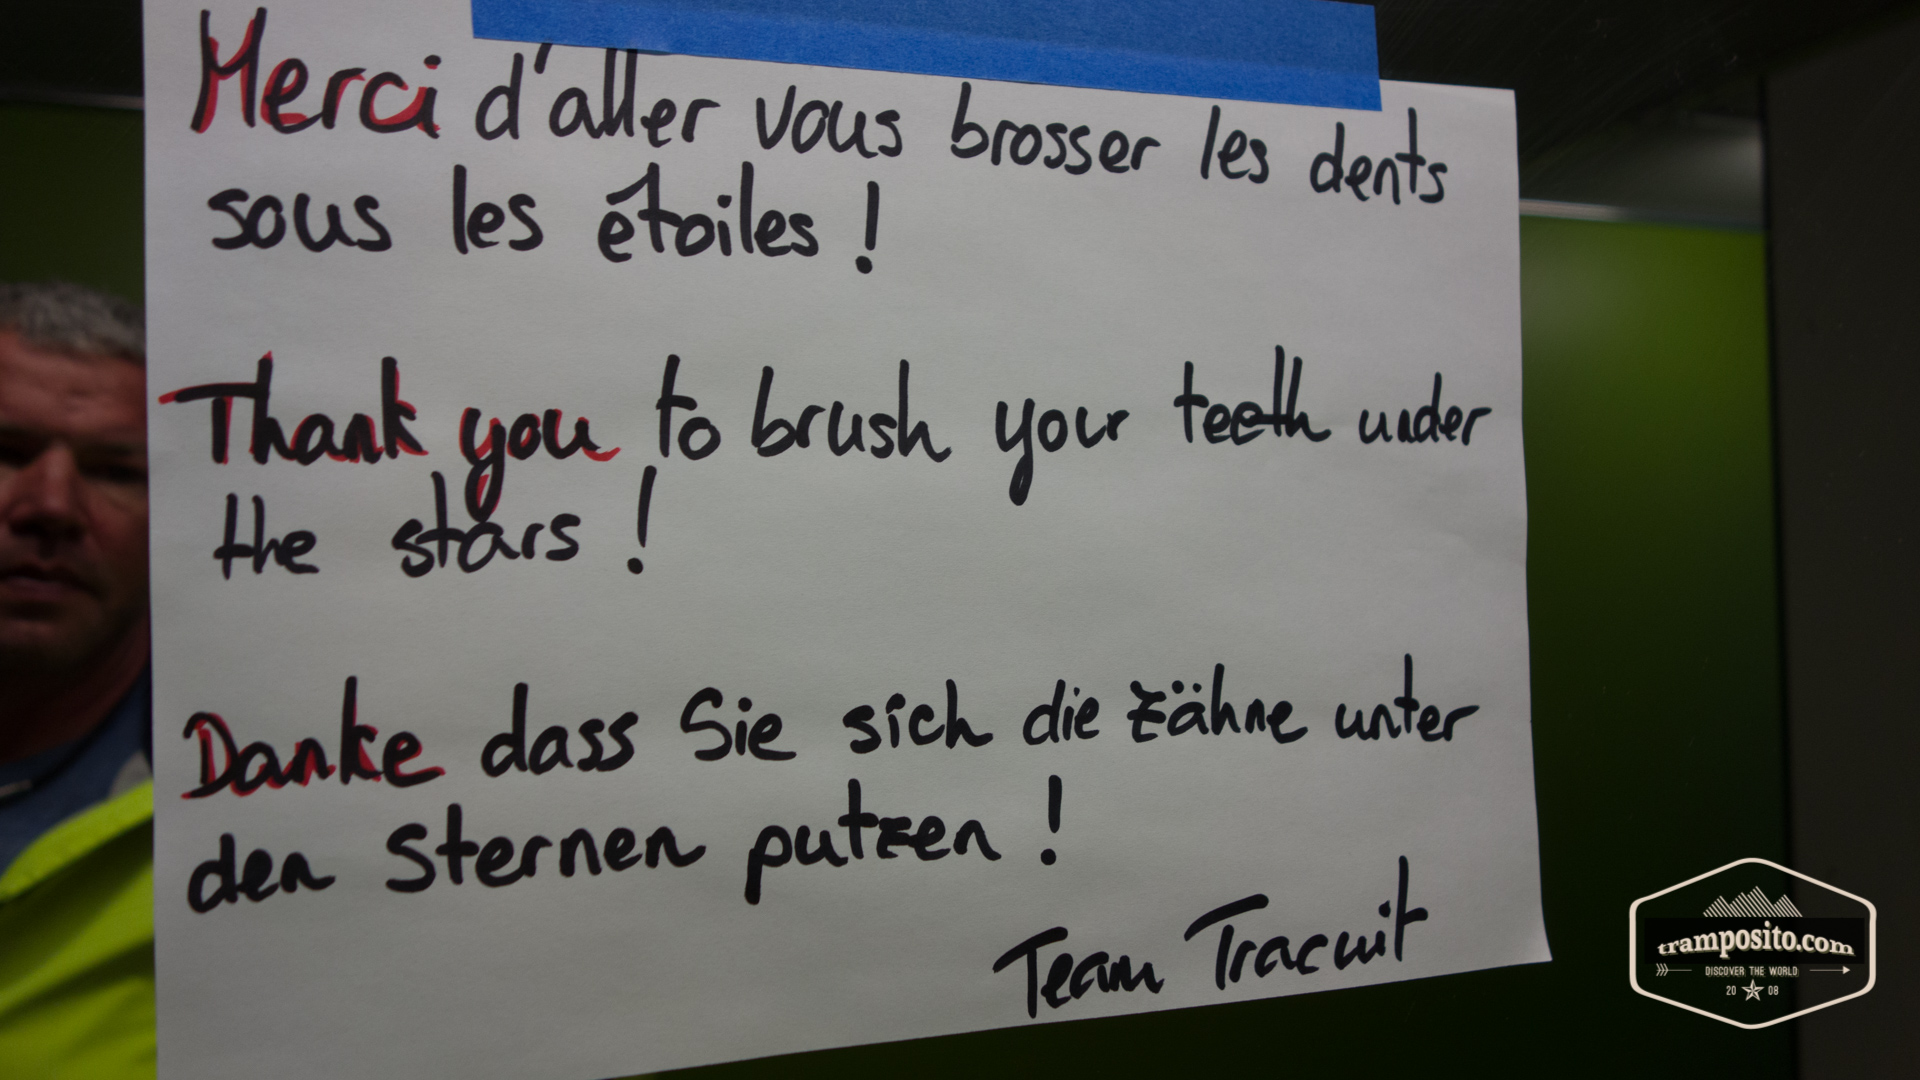 Merci d'aller vous brosser les dents
sous les étoiles !
Thank you to brush your teeth under
the stars !
Danke dass Sie sich die Zähne unter
den Sternen putzen !
Team Tracuit
tramposito.com
DISCOVER THE WORLD
20 08